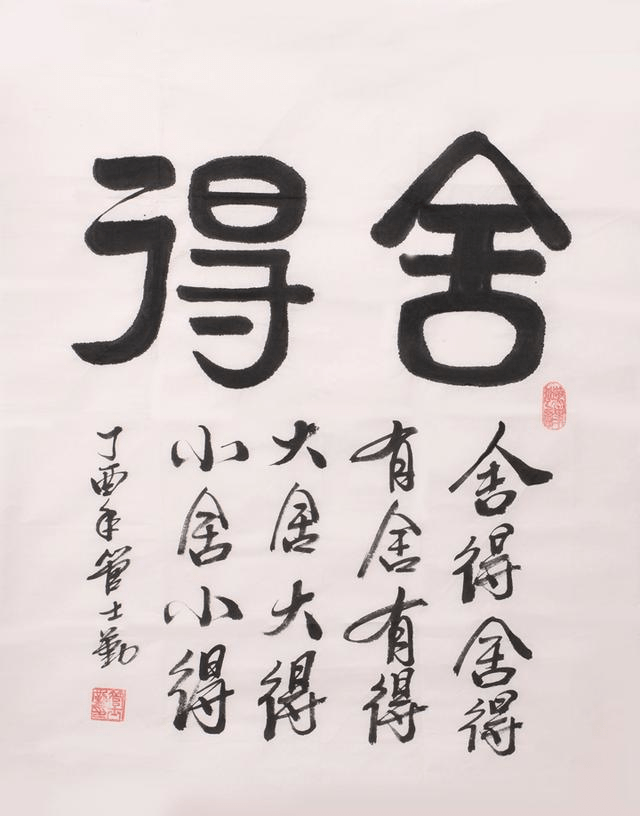 舍得
舍得舍得
有舍有得
大舍大得
小舍小得
丁酉年管士勤